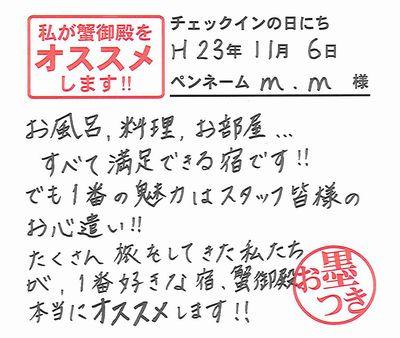 私が蟹御殿を
オススメ
します!!
チェックインの日にち
H23年11月6日
ペンネーム m.m 様
お風呂,料理,お部屋...
すべて満足できる宿です!!
でも1番の魅力はスタッフ皆様の
お心遣い!!
たくさん旅をしてきた私たち
が,1番好きな宿、蟹御殿
本当にオススメします!!
お墨つき